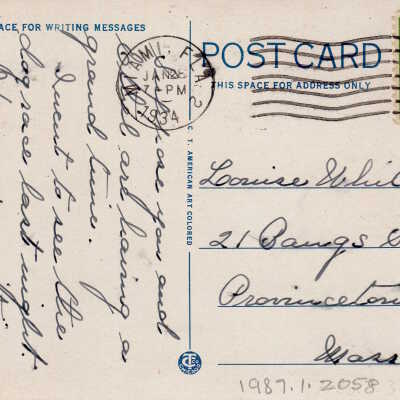 ACE FOR WRITING MESSAGES
POST CARD
THIS SPACE FOR ADDRESS ONLY
MIAMI, FLA. 2
JAN 26
7 - PM
1934
hope you and
all are having a
grand time.
I went to see the
dog race last night.
C. T. AMERICAN ART COLORED
Louise Whit
21 Bangs S
Provincetow
Mass
1987.1.2058